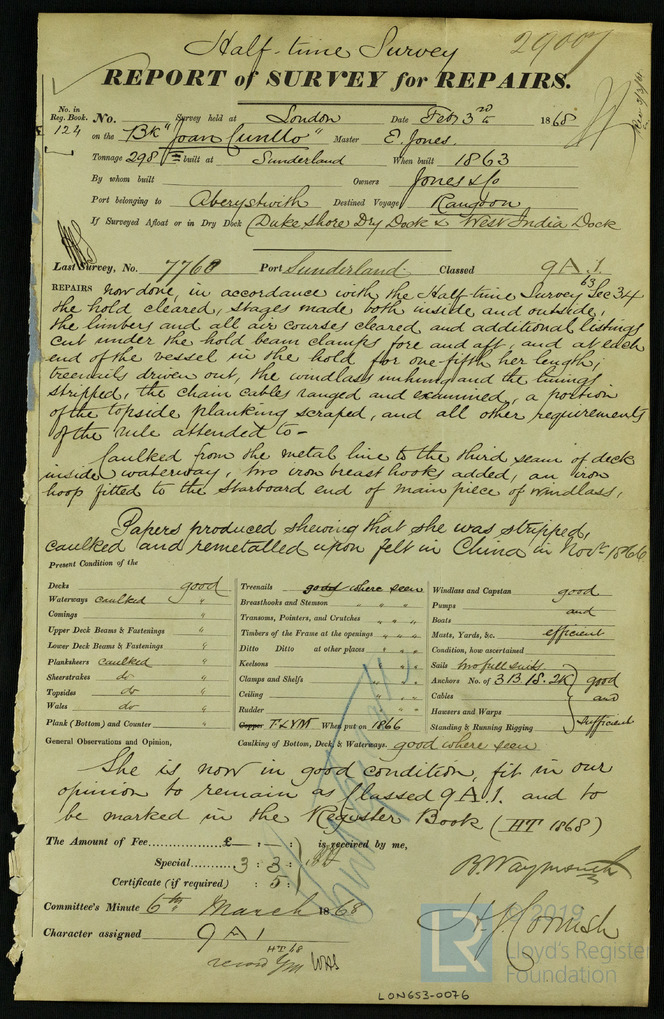 Half-time Survey
29007
REPORT of SURVEY for REPAIRS.
No. in Reg. Book. 124
No. Survey held at London Date Feb 3rd 1868
on the Bk "Joan Cunllo" Master E. Jones.
Tonnage 298 built at Sunderland When built 1863
By whom built Owners Jones & Co
Port belonging to Aberystwith Destined Voyage Rangoon
If Surveyed Afloat or in Dry Dock (Duke Shore Dry Dock & West India Dock
Last Survey, No. 7760 Port Sunderland. Classed 9A.1
63
REPAIRS now done, in accordance with the Half-time Survey Sec 34
the hold cleared, stages made both inside and outside,
the limbers and all air courses cleared and additional listings
cut under the hold beam clamps fore and aft, and at each
end of the vessel in the hold for one fifth her length;
treenails driven out, the windlass unhung and the linings
stripped, the chain cables ranged and examined, a portion
of the topside planking scraped, and all other requirements
of the rule attended to -
Caulked from the metal line to the third seam of deck
inside waterway, two iron breast hooks added, an iron
hoop fitted to the starboard end of main piece of windlass,
Papers produced shewing that she was stripped,
caulked and remetalled upon felt in China in Novr. 1866
Present Condition of the
Decks good
Waterways caulked "
Comings "
Upper Deck Beams & Fastenings "
Lower Deck Beams & Fastenings "
Planksheers caulked "
Sheerstrakes do "
Topsides do "
Wales do "
Plank (Bottom) and Counter "
Treenails good where seen
Breasthooks and Stemson " " "
Transoms, Pointers, and Crutches " " "
Timbers of the Frame at the openings " " "
Ditto Ditto at other places " " "
Keelsons " "
Clamps and Shelfs " "
Ceiling " "
Rudder " "
Copper F & YM When put on 1866
Windlass and Capstan good
Pumps and
Boats
Masts, Yards, &c. efficient
Condition, how ascertained
Sails two full suits
Anchors No. of 3B. 1S. 2K good
Cables and
Hawsers and Warps
Standing & Running Rigging sufficient
General Observations and Opinion, Caulking of Bottom, Deck, & Waterways. good where seen
She is now in good condition, fit in our
opinion to remain as Classed 9A.1. and to
be marked in the Register Book (HT 1868)
The Amount of Fee £ - " - : is received by me,
Special 3 : 3 :
Certificate (if required) : 5 :
B. Waymouth
Committee's Minute 6th March 1868
H. J. Cornish
Character assigned 9A1
HT 68
record YM
© 2019
LR
Lloyd's Register
Foundation
LON653-0076